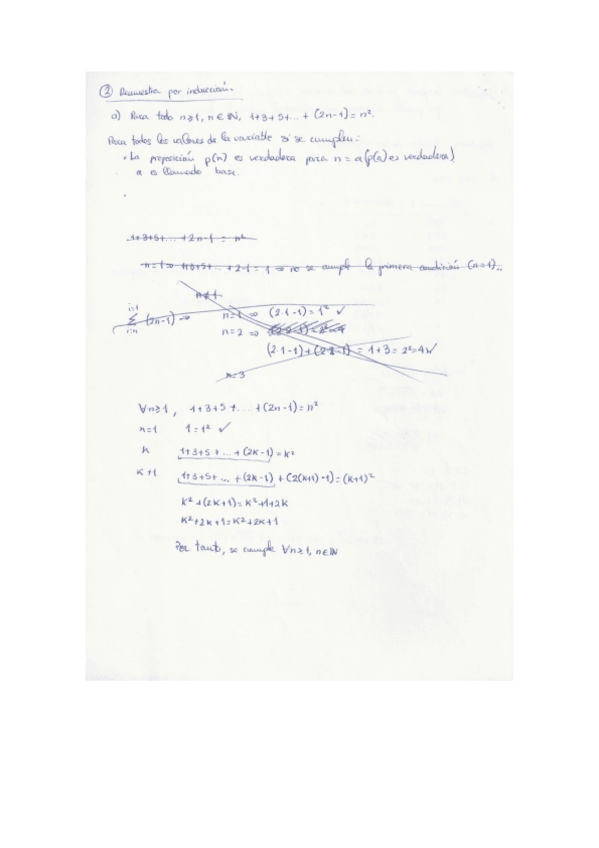 ② Demuestra por inducción.
a) Para todo n≥1, n∈ℕ, 1+3+5+...+(2n-1)=n².
Para todos los valores de la variable si se cumplen:
• La proposición p(n) es verdadera para n=a (p(a) es verdadera)
a es llamado base.
•
1+3+5+...+2n-1=n²
n=1⇒ 1+3+5+...+2·1=1 ⇒ no se cumple la primera condición (n=1)..
n≠1
Σ (2n-1) ⇒ n=1 ⇒ (2·1-1)=1² ✓
n=2 ⇒
(2·1-1)+(2·2-1)=1+3=2²=4✓
n=3
∀n≥1, 1+3+5+...+(2n-1)=n²
n=1 1=1² ✓
K 1+3+5+...+(2K-1)=K²
K+1 1+3+5+...+(2K-1)+(2(K+1)-1)=(K+1)²
K²+(2K+1)=K²+1+2K
K²+2K+1=K²+2K+1
Por tanto, se cumple ∀n≥1, n∈ℕ